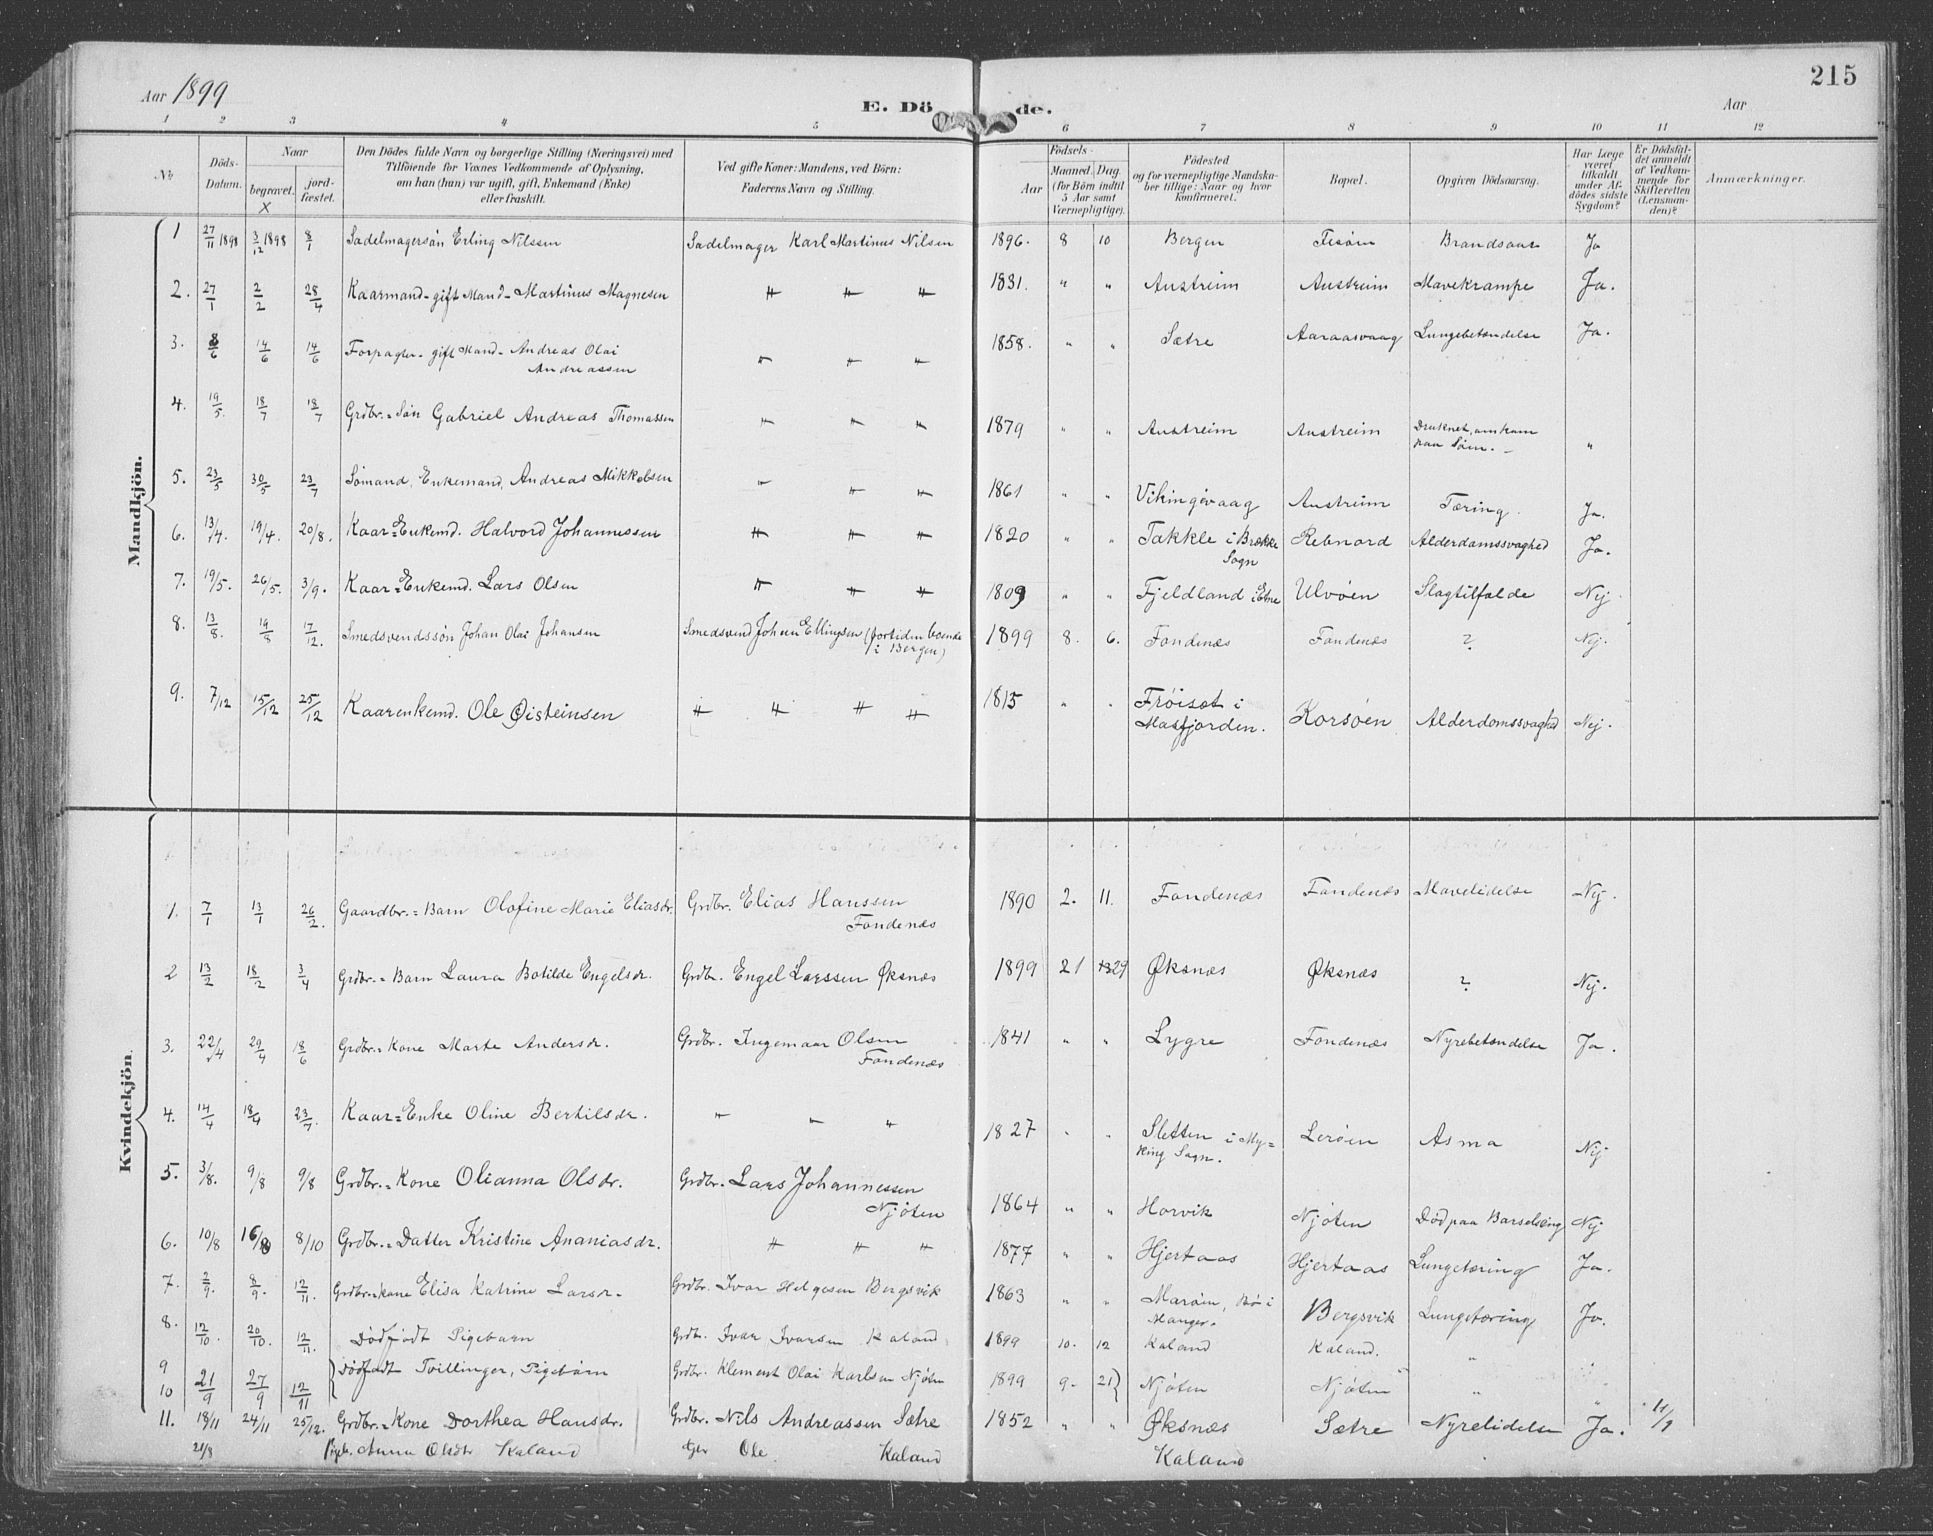 Aar 1899
E. Dö de.
Aar
215
1 2 3 4 5 6 7 8 9 10 11 12
No.
Döds-Datum.
Naar
begravet. X
jordfæstet.
Den Dödes fulde Navn og borgerlige Stilling (Næringsvei) med Tilföiende for Voxnes Vedkommende af Oplysning, om han (hun) var ugift, gift, Enkemand (Enke) eller fraskilt.
Ved gifte Koner: Mandens, ved Börn: Faderens Navn og Stilling.
Födsels-
Aar
Maaned. Dag. (for Börn indtil 5 Aar samt Værnepligtige).
Födested og for værnepligtige Mandskaber tillige: Naar og hvor konfirmeret.
Bopæl.
Opgiven Dödsaarsag.
Har Læge været tilkaldt under Afdödes sidste Sygdom?
Er Dödsfaldet anmeldt af Vedkommende for Skifteretten (Lensmanden)?
Anmærkninger.
Mandkjön.
1 27/11 1898 3/12 1898 8/1 Sadelmagersøn Erling Nilssen Sadelmager Karl Martinus Nilsen 1896. 8 10 Bergen Fesøen Brandsaar Ja
2. 27/1 2/2 28/4 Kaarmand - gift Mand - Martinus Magnesen " " " 1831. " " Austreim Austreim Mavekrampe Ja.
3. 8/6 14/6 14/6 Forpagter - gift Mand - Andreas Olai Andreassen " " " 1858. " " Sætre Aaraasvaag Lungebetændelse Ja.
4. 19/5. 18/7 18/7 Grdbr.=Søn Gabriel Andreas Thomassen " " " 1879 " " Austreim Austreim Druknet, omkom paa Søen. - "
5. 23/5 30/5 23/7 Sømand, Enkemand, Andreas Mikkelsen " " " 1861 " " Vikingevaag Austreim Tæring. Ja.
6. 13/4. 19/4. 20/8. Kaar=Enkemd. Halvord Johannessen " " " 1820 " " Takkle i Brække Sogn Rebnord Alderdomssvaghed Ja.
7. 19/5. 26/5. 3/9. Kaar=Enkemd. Lars Olsen " " " 1809 " " Fjeldland i Etne Ulvøen Slagtilfælde Nej
8. 13/8. 19/8 17/12. Smedsvendssøn Johan Olai Johansen Smedsvend Johan Ellingsen (fortiden boende i Bergen) 1899 8. 6. Fondenæs Fondenæs ? Nej.
9. 7/12 15/12 25/12 Kaarenkemd. Ole Øisteinsen " " " " 1815 " " Frøiset i Masfjorden. Korsøen Alderdomssvaghed Nej.
Kvindekjön.
1. 7/1 13/1 26/2. Gaardbr.=Barn Olofine Marie Eliasdr. Grdbr. Elias Hanssen Fondenæs 1890 2. 11. Fondenæs Fondenæs Mavelidelse Nej.
2 13/2 18/2 3/4 Grdbr.=Barn Laura Botilde Engelsdr. Grdbr. Engel Larssen Øksnæs 1899 21 29 Øksnæs Øksnæs ? Nej.
3. 22/4 29/4 18/6 Grdbr.=Kone Marte Andersdr. Grdbr. Ingemar Olsen Fondenæs 1841 " " Lygre Fondenæs Nyrebetændelse Ja.
4. 14/4 18/4 23/7. Kaar=Enke Oline Bertilsdr. " " " 1827 " " Sletten i Myking Sogn. Lerøen Asma Nej
5. 3/8. 9/8 9/8 Grdbr.=Kone Olianna Olsdr. Grdbr. Lars Johannessen Njøten 1864 " " Horvik Njøten Død paa Barselseng Nej
6. 10/8 16/8 8/10 Grdbr.=Datter Kristine Ananiasdr. " " " 1877 " " Hjertaas Hjertaas Lungetæring Ja.
7. 2/9. 8/9. 12/11. Grdbr.=Kone Elisa Katrine Larsdr. Grdbr. Ivar Helgesen Bergsvik 1863 " " Marøen, Bø i Manger. Bergsvik Lungetæring Ja.
8. 12/10. 20/10. 12/11. Dødfødt Pigebarn Grdbr. Ivar Ivarsen Kaland 1899 10. 12 Kaland Kaland. "
9 10 21/9 27/9 12/11 Dødfødt Tvillinger, Pigebørn Grdbr. Klement Olai Karlsen Njøten 1899 9. 21 Njøten Njøten " "
11. 18/11 24/11 25/12. Grdbr.=Kone Dorthea Hansdr. Grdbr. Nils Andreassen Sætre 1852 " " Øksnæs Sætre Nyrelidelse Ja. 11/1
21/8 Pigeb. Anna Olsdtr Kaland Gjer Ole Kaland Kaland